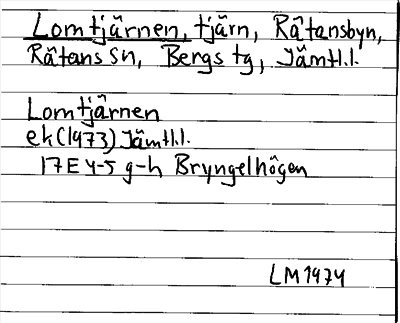 Lomtjärnen, tjärn, Råtansbyn,
Råtans sn, Bergs tg, Jämtl.l.
Lomtjärnen
ek (1973) Jämtl.l.
17E 4-5 g-h Bryngelhögen
LM 1974